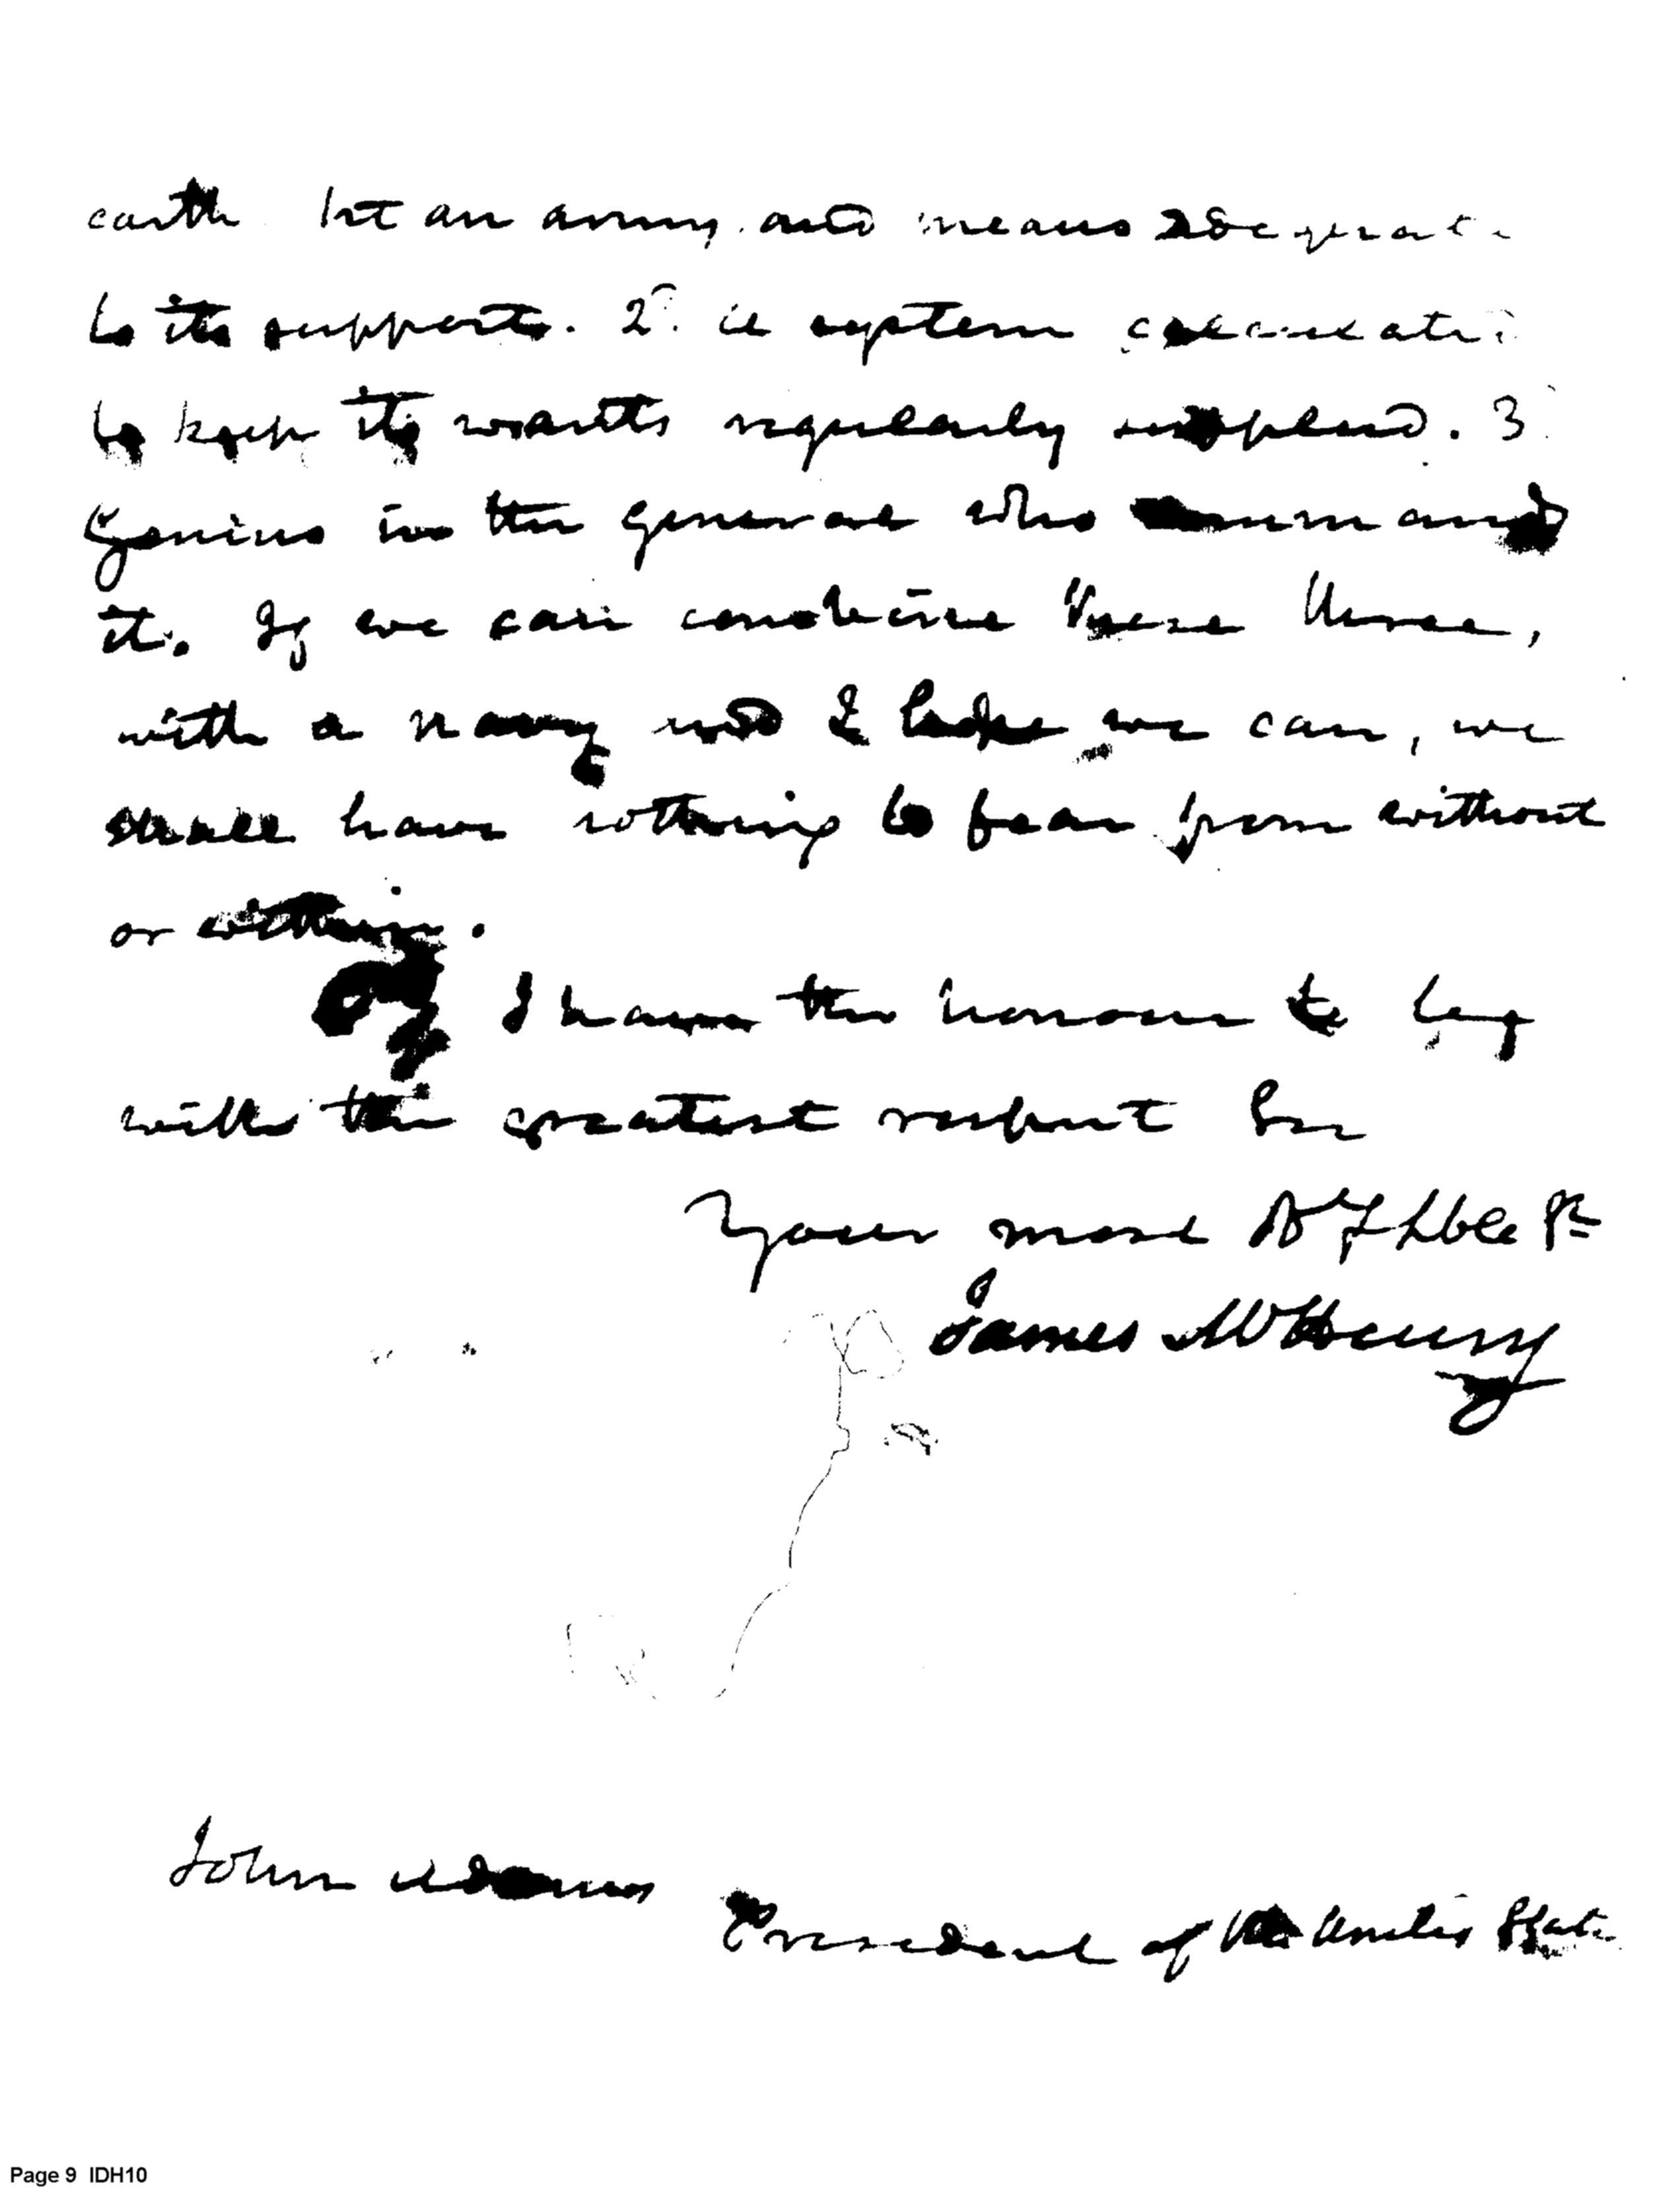 earth 1st an army, and means adequate
to its support. 2d. a system calculated
to keep its wants regularly supplied. 3
Genius in the general who command
it. If we can combine these three,
with a navy and I hope we can, we
shall have nothing to fear from without
or within.
I have the honour to be,
with the greatest respect Sir
Your most Ob hble St
James McHenry
John Adams
President of the United States
Page 9 IDH10